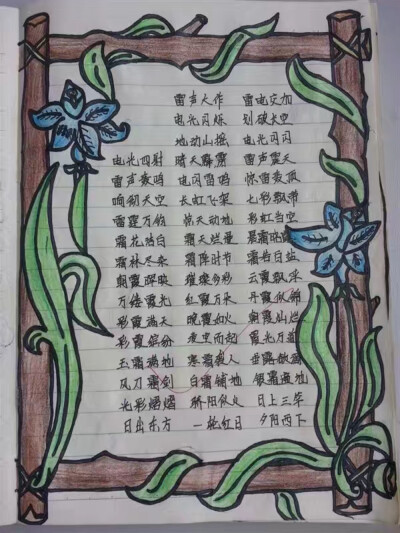 雷声大作 雷电交加
电光闪烁 划破长空
地动山摇 电光闪闪
电光四射 晴天霹雳 雷声震天
雷声轰鸣 电闪雷鸣 惊雷轰顶
响彻天空 长虹飞架 七彩飘带
雷霆万钧 惊天动地 彩虹当空
霜花洁白 霜天烂漫
霜林尽染 霜降时节 霜白日盐
朝霞辉映 璀璨多彩 云霞飘浮
万缕霞光 红霞万朵 丹霞似锦
彩霞满天 晚霞如火 朝霞灿烂
彩霞缤纷 夜空而起 霞光万道
玉霜满地 寒霜袭人
风刀霜剑 白霜铺地 银霜遍地
光彩熠熠 骄阳似火 日上三竿
日出东方 一轮红日 夕阳西下